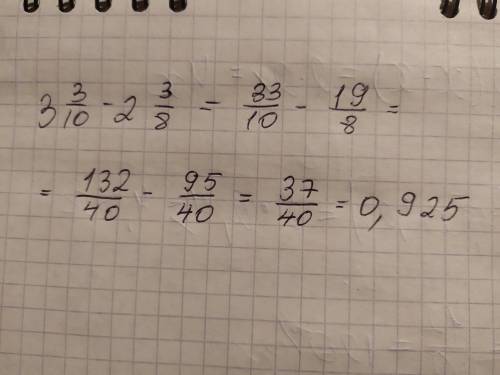 3 3/10 - 2 3/8 = 33/10 - 19/8 =
= 132/40 - 95/40 = 37/40 = 0,925